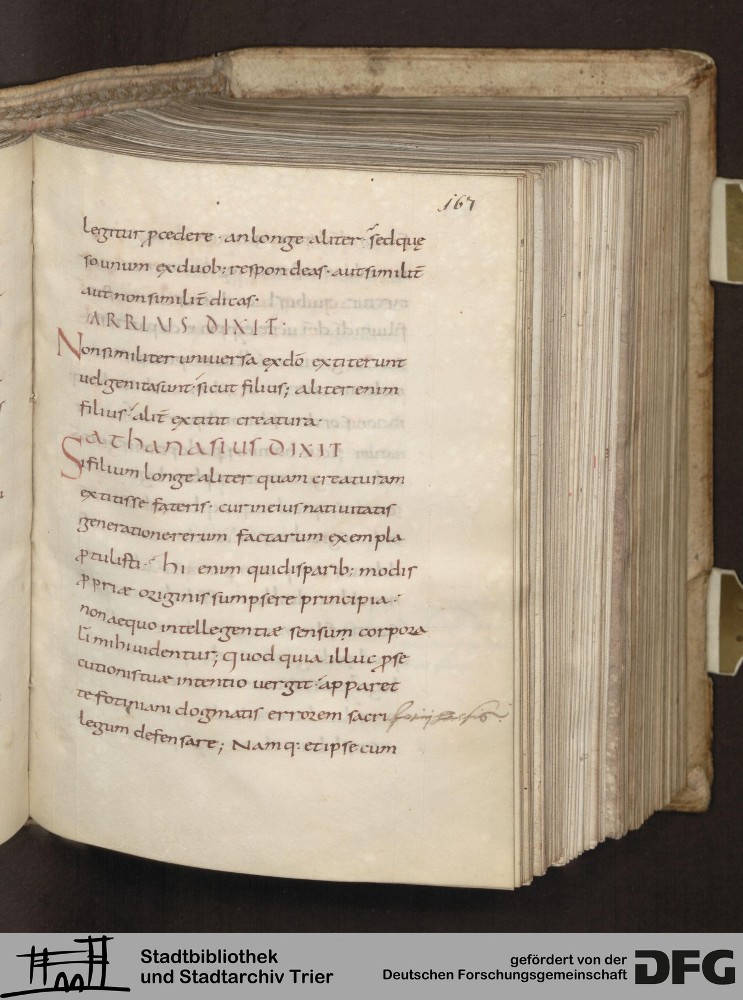 167
legitur p̱cedere · an longe aliter · sed quę
so unum ex duob: respondeas · aut similit̄
aut non similit̄ dicas ·
ARRIUS DIXIT:
Non similiter universa ex dō extiterunt
vel genita sunt · sicut filius; aliter enim
filius · alit̄ extitit creatura ·
athanasius DIXIT
Si filium longe aliter quam creaturam
extitisse fateris · cur in eius nativitatis
generatione rerum factarum exempla
p̱tulisti · hi enim qui disparib: modis
p̱priæ originis sumpsere principia ·
non aequo intellegentiæ sensum corpora
mihi videntur; quod quia illuc p̱se
cutionis tuæ intentio vergit · apparet
te fotiniani dogmatis errorem sacri
legum defensare; Namq: et ipse cum
Stadtbibliothek
und Stadtarchiv Trier
gefördert von der
Deutschen Forschungsgemeinschaft
DFG